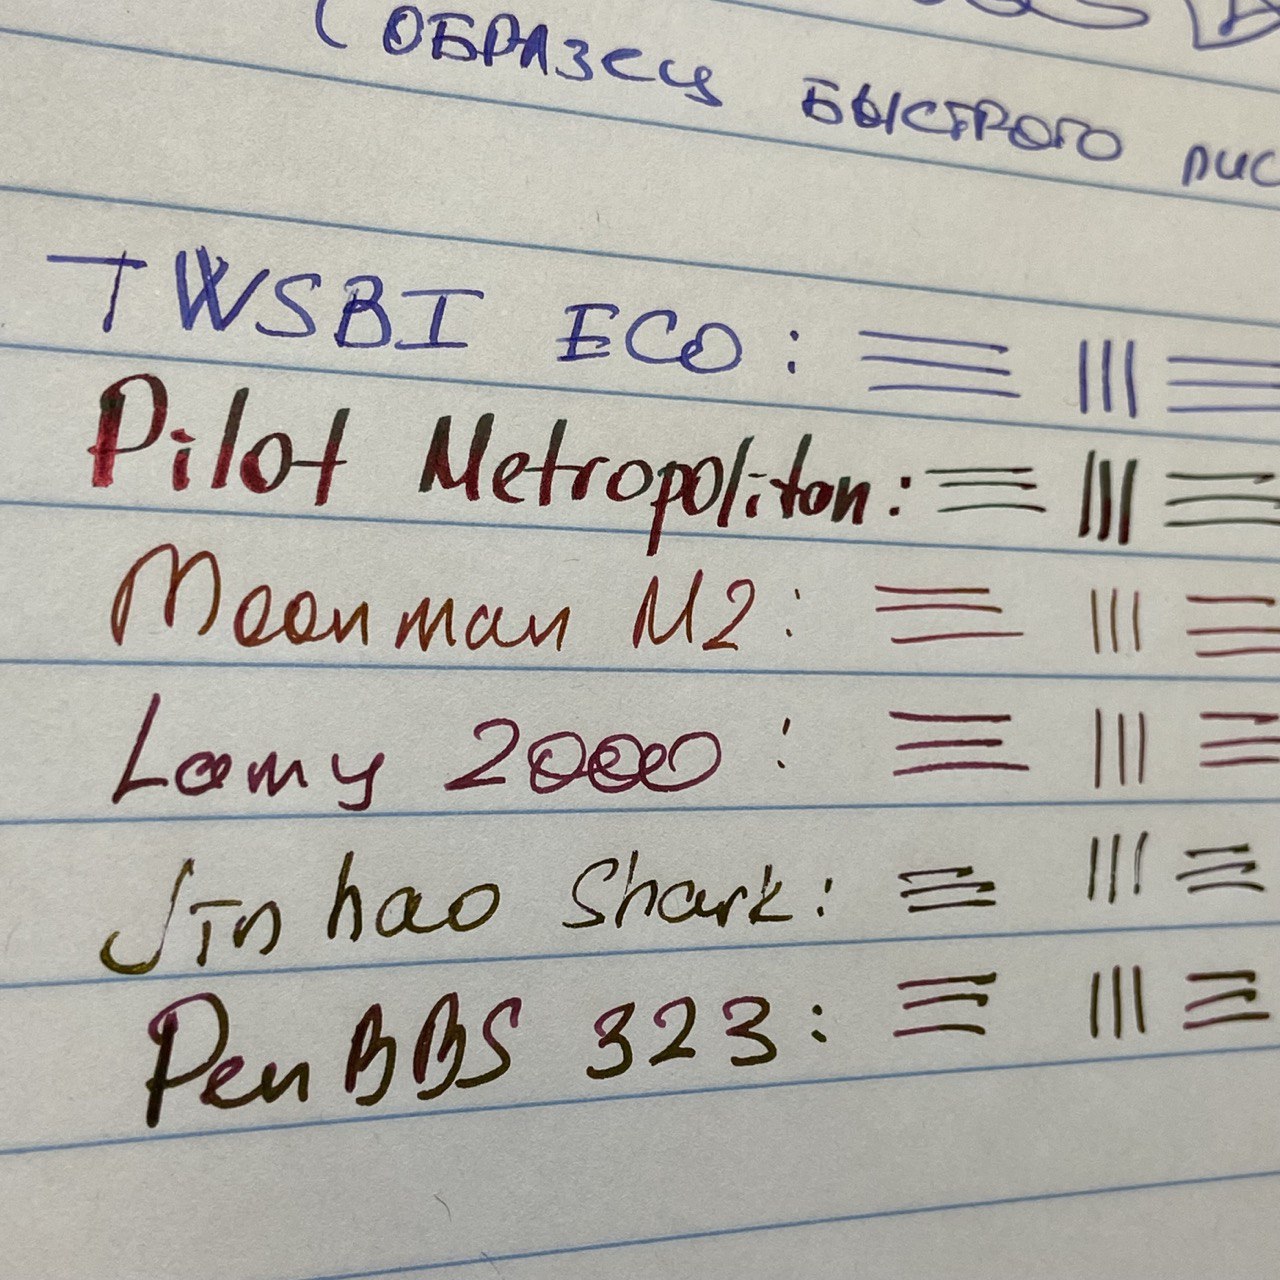 (ОБРАЗЕЦ БЫСТРОГО
TWSBI ECO:
Pilot Metropoliton:
Moonman M2:
Lamy 2000:
Jinhao Shark:
PenBBS 323: